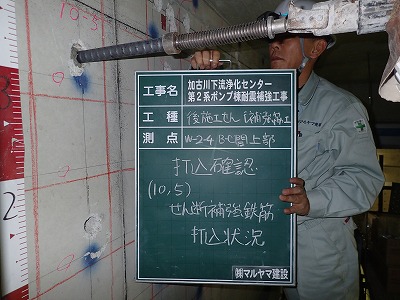 10-5
工事名
加古川下流浄化センター
第2系ポンプ棟耐震補強工事
工種
後施工せん断補強筋工
測点
W-2-4 B-C間上部
打込確認
(10,5)
せん断補強鉄筋
打込状況
㈱マルヤマ建設
2